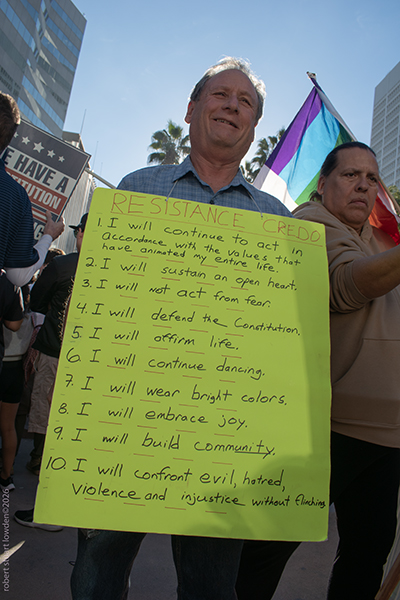 HAVE A
CONSTITUTION
RESISTANCE CREDO
1. I will continue to act in
accordance with the values that
have animated my entire life.
2. I will sustain an open heart.
3. I will not act from fear.
4. I will defend the Constitution.
5. I will affirm life.
6. I will continue dancing.
7. I will wear bright colors.
8. I will embrace joy.
9. I will build community.
10. I will confront evil, hatred,
violence and injustice without flinching.
robert stuart lowden©2026